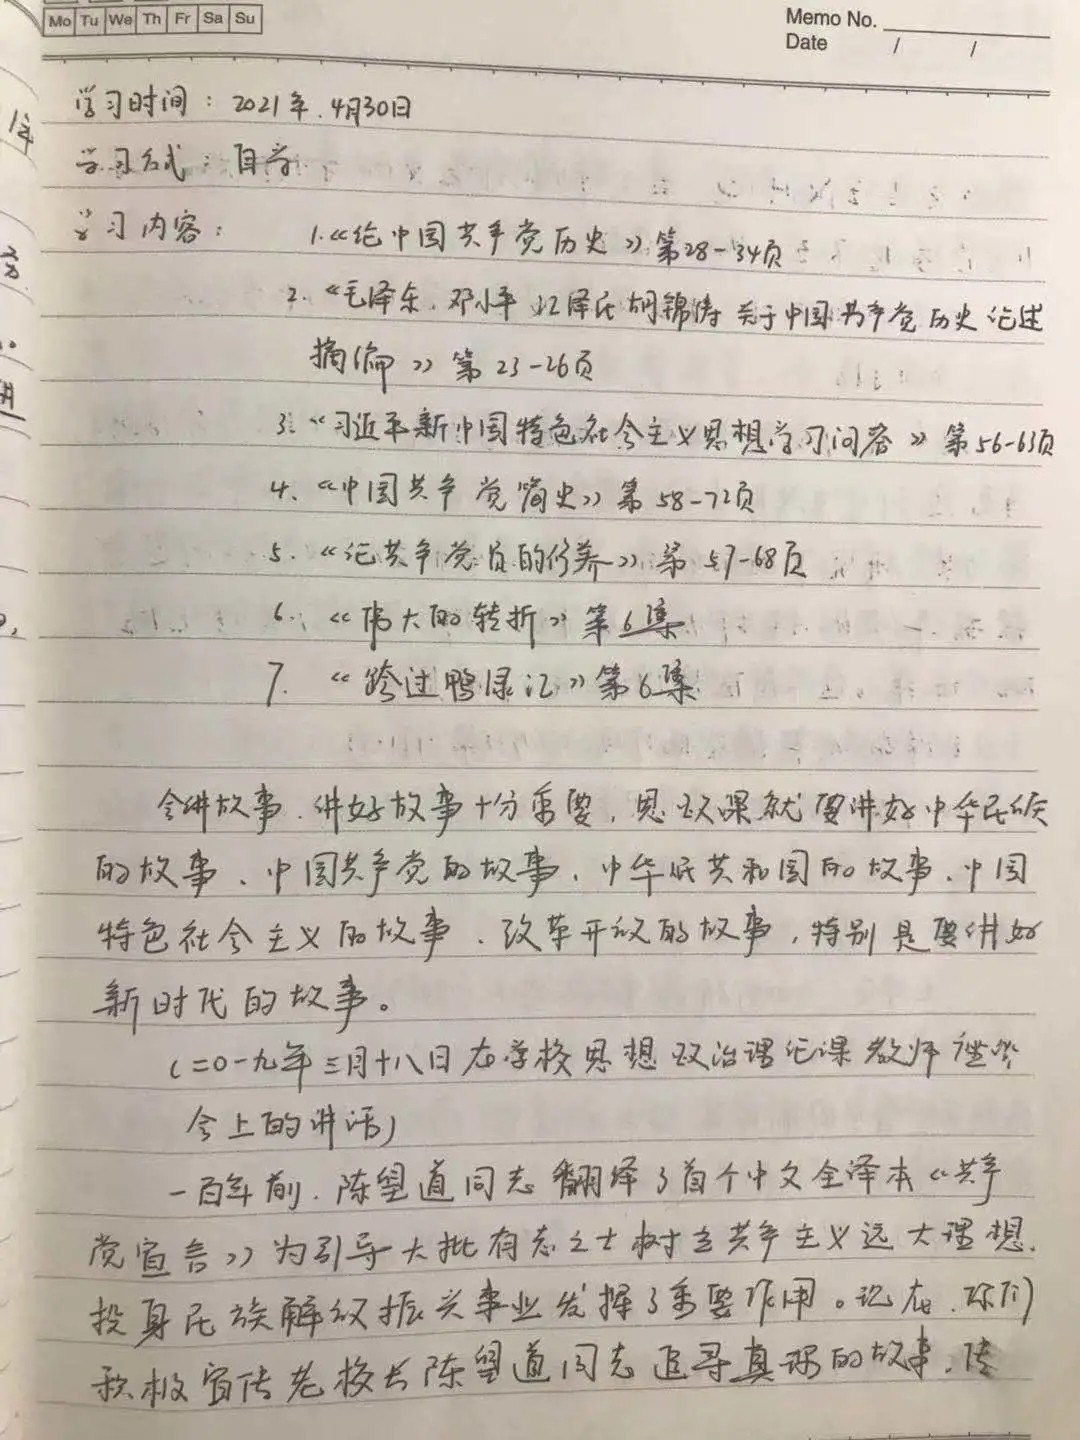 Mo Tu We Th Fr Sa Su
Memo No.
Date / /
学习时间：2021年.4月30日
学习方式：自学
学习内容：1.《论中国共产党历史》第28-34页
2.《毛泽东、邓小平 江泽民 胡锦涛 关于中国共产党历史论述
摘编》第23-26页
3.《习近平新中国特色社会主义思想学习问答》第56-63页
4、《中国共产党简史》第58-72页
5.《论共产党员的修养》第57-68页
6.《伟大的转折》第6集
7.《跨过鸭绿江》第6集
会讲故事、讲好故事十分重要，思政课就要讲好中华民族
的故事、中国共产党的故事、中华民共和国的故事、中国
特色社会主义的故事、改革开放的故事，特别是要讲好
新时代的故事。
（二0一九年三月十八日在学校思想政治理论课教师座谈
会上的讲话）
一百年前，陈望道同志翻译了首个中文全译本《共产
党宣言》为引导大批有志之士树立共产主义远大理想、
投身民族解放振兴事业发挥了重要作用。现在，你们
积极宣传老校长陈望道同志追寻真理的故事，传